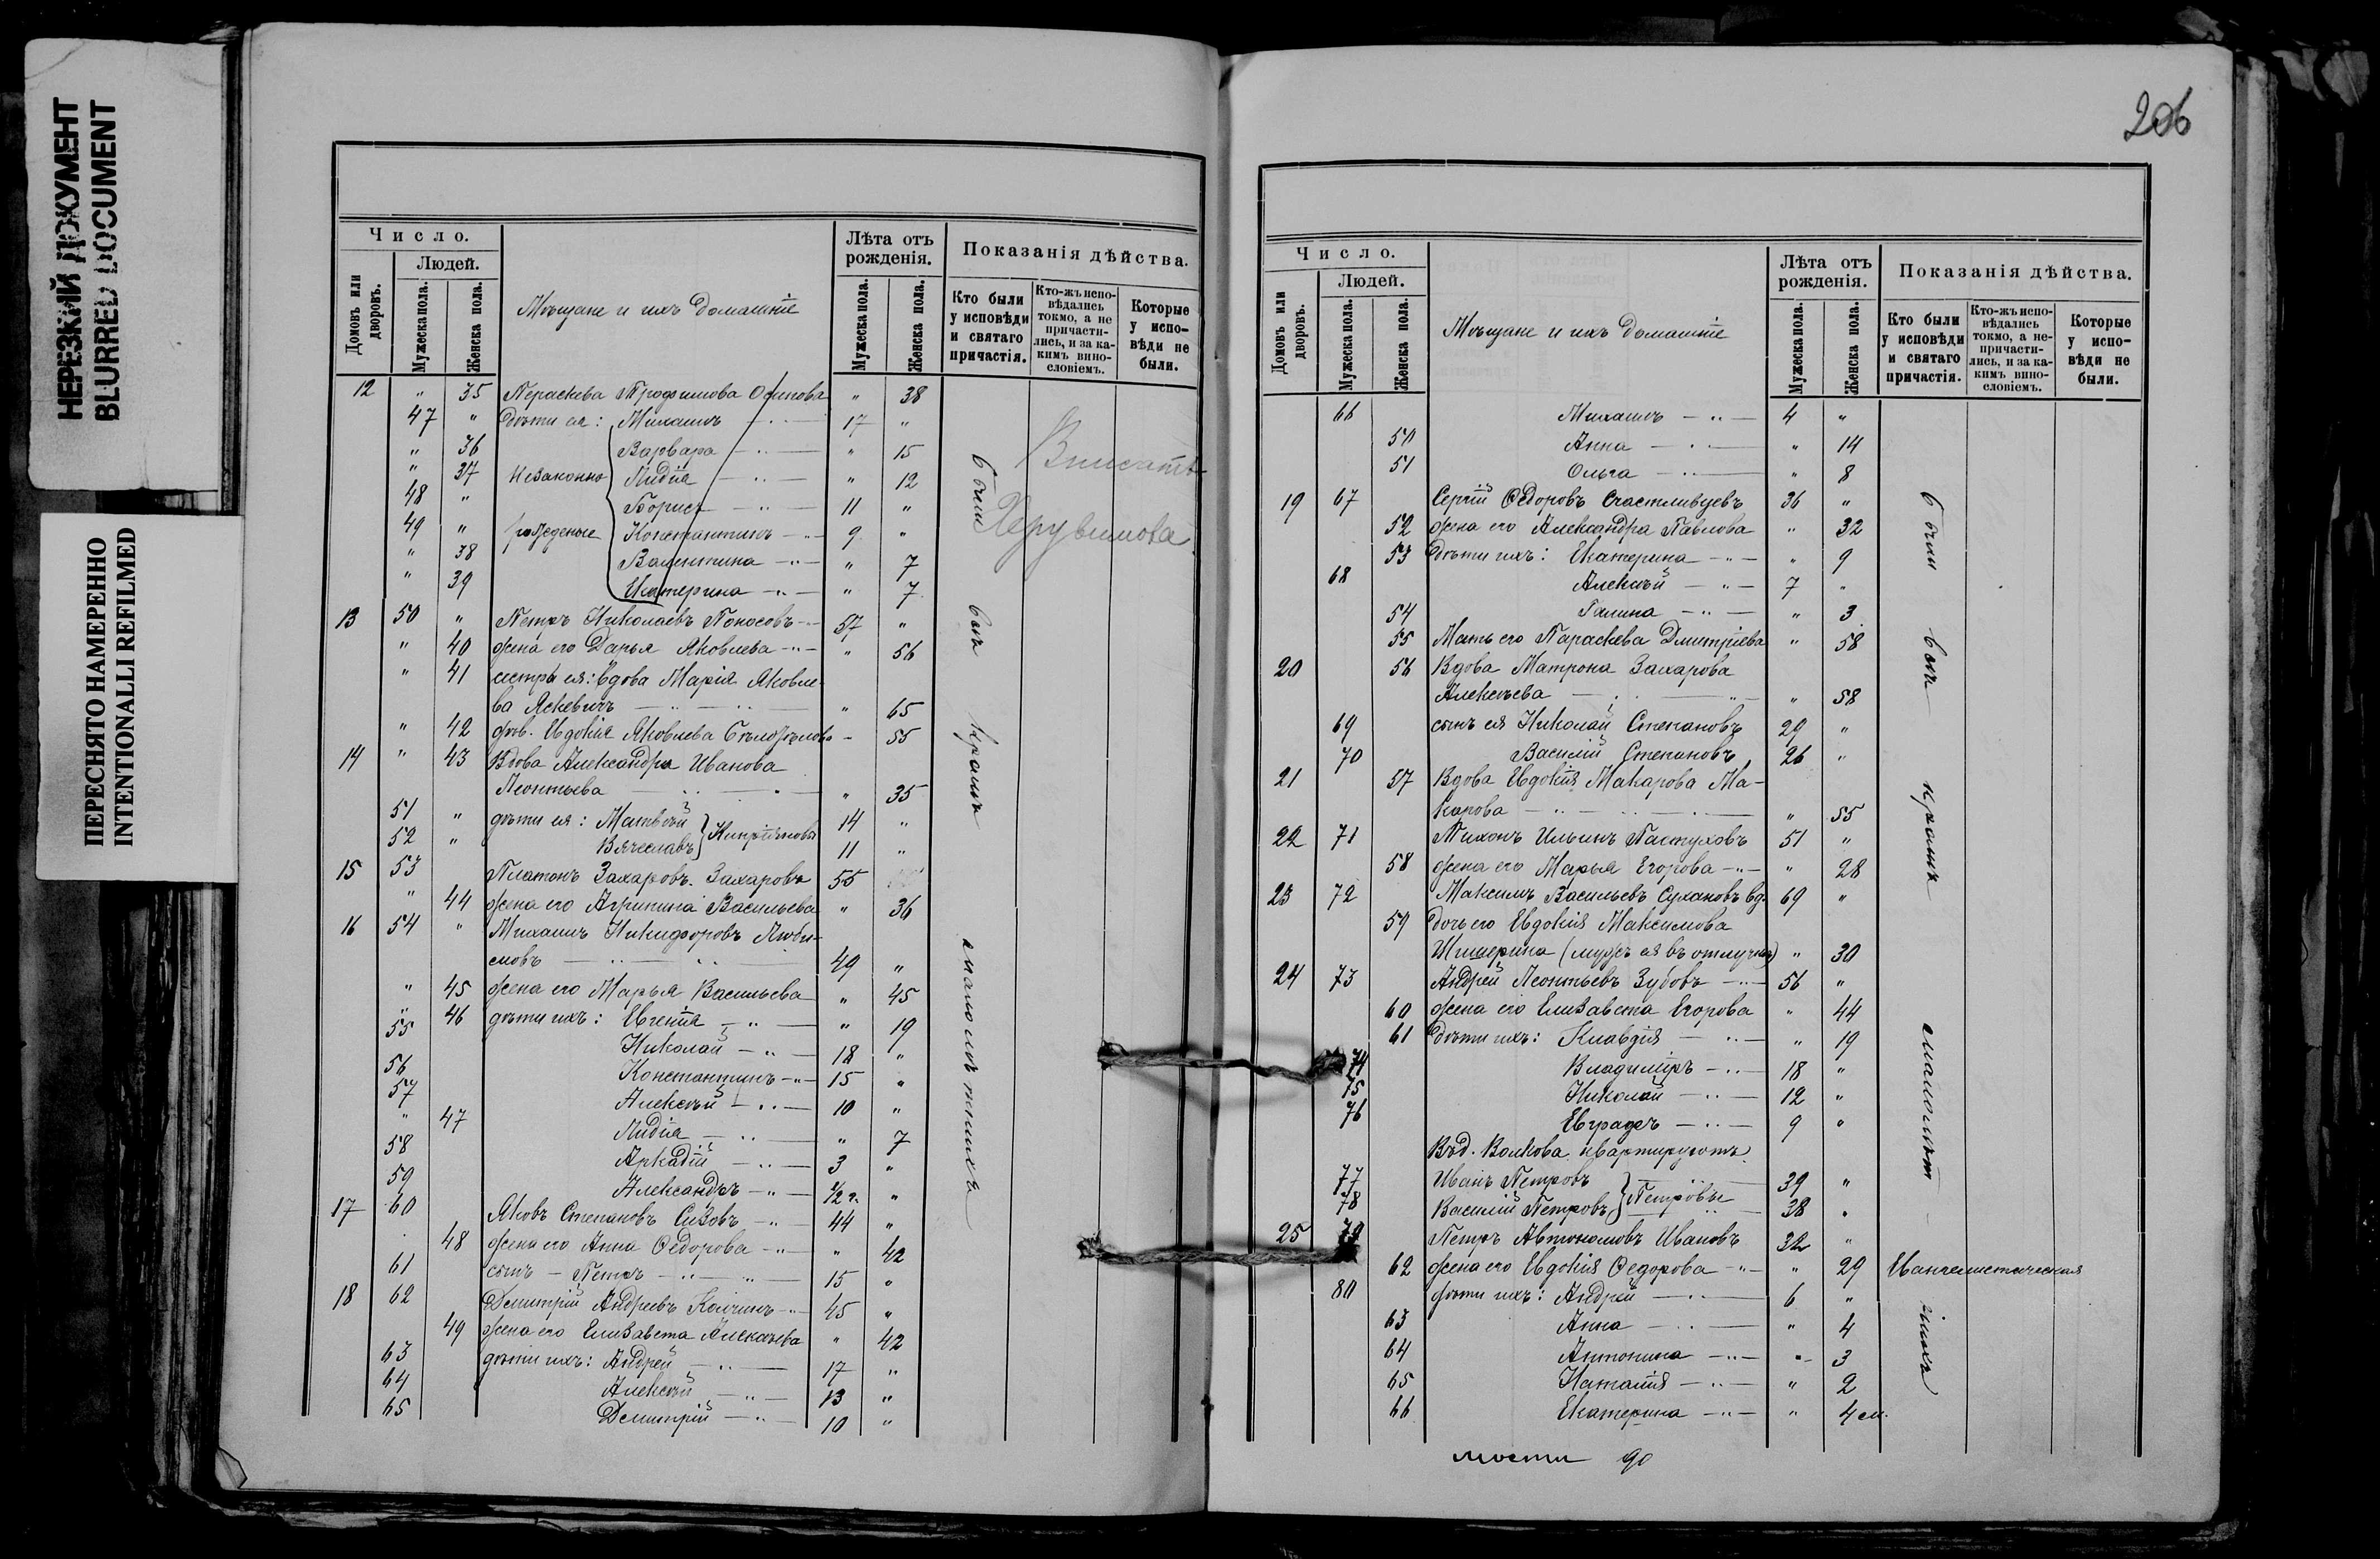 НЕРЕЗКИЙ ДОКУМЕНТ
BLURRED DOCUMENT
ПЕРЕСНЯТО НАМЕРЕННО
INTENTIONALLI REFILMED
Число.
Людей.
Домовъ или дворовъ.
Мужеска пола.
Женска пола.
Мѣщане и ихъ домашніе
Лѣта отъ рожденія.
Мужеска пола.
Женска пола.
Показанія дѣйства.
Кто были у исповѣди и святаго причастія.
Кто-жъ исповѣдались токмо, а не причастились, и за какимъ винословіемъ.
Которые у исповѣди не были.
12 " 35 Пераскева Трофимова Осипова " 38
47 " дѣти ея: Михаилъ — " — 17 "
" 36 Варвара — " — " 15
" 37 Незаконно Лидія — " — " 12
48 " Борисъ — " — 11 "
49 " рожденые Константинъ — " 9 "
" 38 Валентина — " — " 7
" 39 Екатерина — " — " 7
Вписать
Херувимова
13 50 " Петръ Николаевъ Поносовъ — " 57 "
" 40 жена его Дарья Яковлева — " — " 56
" 41 сестра ея: вдова Марія Яковле-
ва Яскевичъ — " — " — " 65
" 42 дѣв. Евдокія Яковлева — 55
14 " 43 Вдова Александра Иванова
Леонтьева — " — " 35
51 " дѣти ея: Матвѣй 14 "
Кипріяновы
52 " Вячеславъ 11 "
15 53 Платонъ Захаровъ Захаровъ 55
" 44 жена его Агрипина Васильева " 36
16 54 " Михаилъ Никифоровъ Люби-
мовъ — " — " 49 "
" 45 жена его Марья Васильева " 45
" 46 дѣти ихъ: Евгенія — " — " 19
55 Николай — " — 18 "
56 Константинъ — " — 15 "
57 Алексѣй — " — 10 "
" 47 Лидія — " — " 7
58 Аркадій — " — 3 "
59 Александръ — " — 1/2 г. "
17 60 Яковъ Степановъ Сизовъ — " 44 "
48 жена его Анна Ѳедорова — " " 42
61 сынъ — Петръ — " — " — 15 "
18 62 Димитрій Андреевъ — " 45 "
49 жена его Елизавета Алексѣева " 42
63 дѣти ихъ: Андрей — " — 17 "
64 Алексѣй — " — 13 "
65 Димитрій — " — 10 "
были всѣ кромѣ малолѣтнихъ
206
Число.
Людей.
Домовъ или дворовъ.
Мужеска пола.
Женска пола.
Мѣщане и ихъ домашніе
Лѣта отъ рожденія.
Мужеска пола.
Женска пола.
Показанія дѣйства.
Кто были у исповѣди и святаго причастія.
Кто-жъ исповѣдались токмо, а не причастились, и за какимъ винословіемъ.
Которые у исповѣди не были.
66 Михаилъ — " — 4 "
50 Анна — " — " 14
51 Ольга — " — " 8
19 67 Сергій Ѳедоровъ Счастливцевъ 36 "
52 жена его Александра Павлова " 32
53 дѣти ихъ: Екатерина — " — " 9
68 Алексѣй — " — 7 "
54 Галина — " — " 3
55 Мать его Параскева Дмитріева " 58
20 56 Вдова Матрона Захарова
Алексѣева — " — " 58
69 сынъ ея Николай Степановъ 29 "
70 Василій Степановъ 26 "
21 57 Вдова Евдокія Макарова Ма-
карова — " — " 55
22 71 Тихонъ Ильинъ Пастуховъ 51 "
58 жена его Марья Егорова — " — " 28
23 72 Максимъ Васильевъ Сухановъ вд. 69 "
59 дочь его Евдокія Максимова
(мужъ ея въ отлучкѣ) " 30
24 73 Андрей Леонтьевъ Зубовъ — " — 56 "
60 жена его Елизавета Егорова " 44
61 дѣти ихъ: Клавдія — " — " 19
74 Владиміръ — " — 18 "
75 Николай — " — 12 "
76 Евграфъ — " — 9 "
Въ д. Волкова квартируютъ
77 Иванъ Петровъ 39 "
Петровы
78 Василій Петровъ 38 "
25 79 Петръ Автономовъ Ивановъ 32 "
62 жена его Евдокія Ѳедорова — " — " 29 Евангелистическая
80 дѣти ихъ: Андрей — " — 6 "
63 Анна — " — " 4
64 Антонина — " — " 3
65 Наталія — " — " 2
66 Екатерина — " — " 4 м.
были всѣ кромѣ малолѣт — нихъ
мости 90